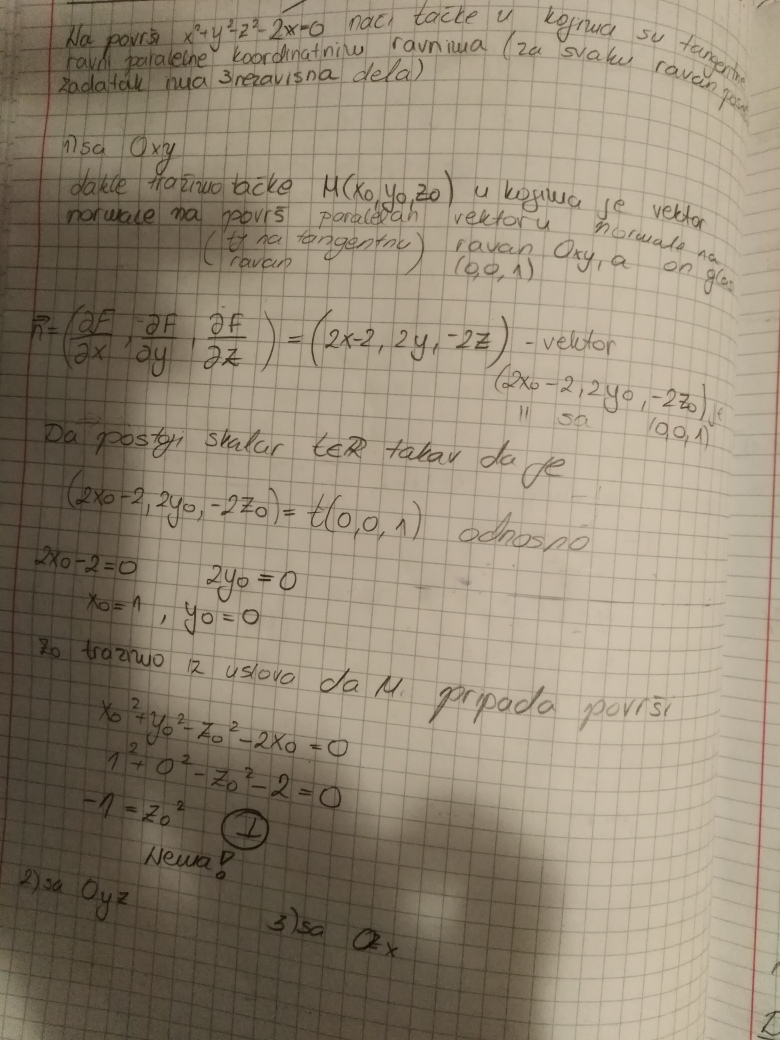 Na površi x²+y²-z²-2x=0 naći tačke u kojima su tangentne
ravni paralelne koordinatnim ravnima (za svaku ravan
zadatak ima 3 nezavisna dela)
1) sa Oxy
dakle tražimo tačke M(x₀,y₀,z₀) u kojima je vektor
normale na površ paralelan vektoru normale na
(tj na tangentnu ravan) ravan Oxy, a on glasi
(0,0,1)
n⃗=(∂F/∂x, ∂F/∂y, ∂F/∂z) = (2x-2, 2y, -2z) - vektor
(2x₀-2, 2y₀, -2z₀) je
|| sa (0,0,1)
Da postoji skalar t∈R takav da je
(2x₀-2, 2y₀, -2z₀) = t(0,0,1) odnosno
2x₀-2=0 2y₀=0
x₀=1, y₀=0
z₀ tražimo iz uslova da M pripada površi
x₀²+y₀²-z₀²-2x₀=0
1²+0²-z₀²-2=0
-1=z₀² I
Nema!
2) sa Oyz
3) sa Ozx